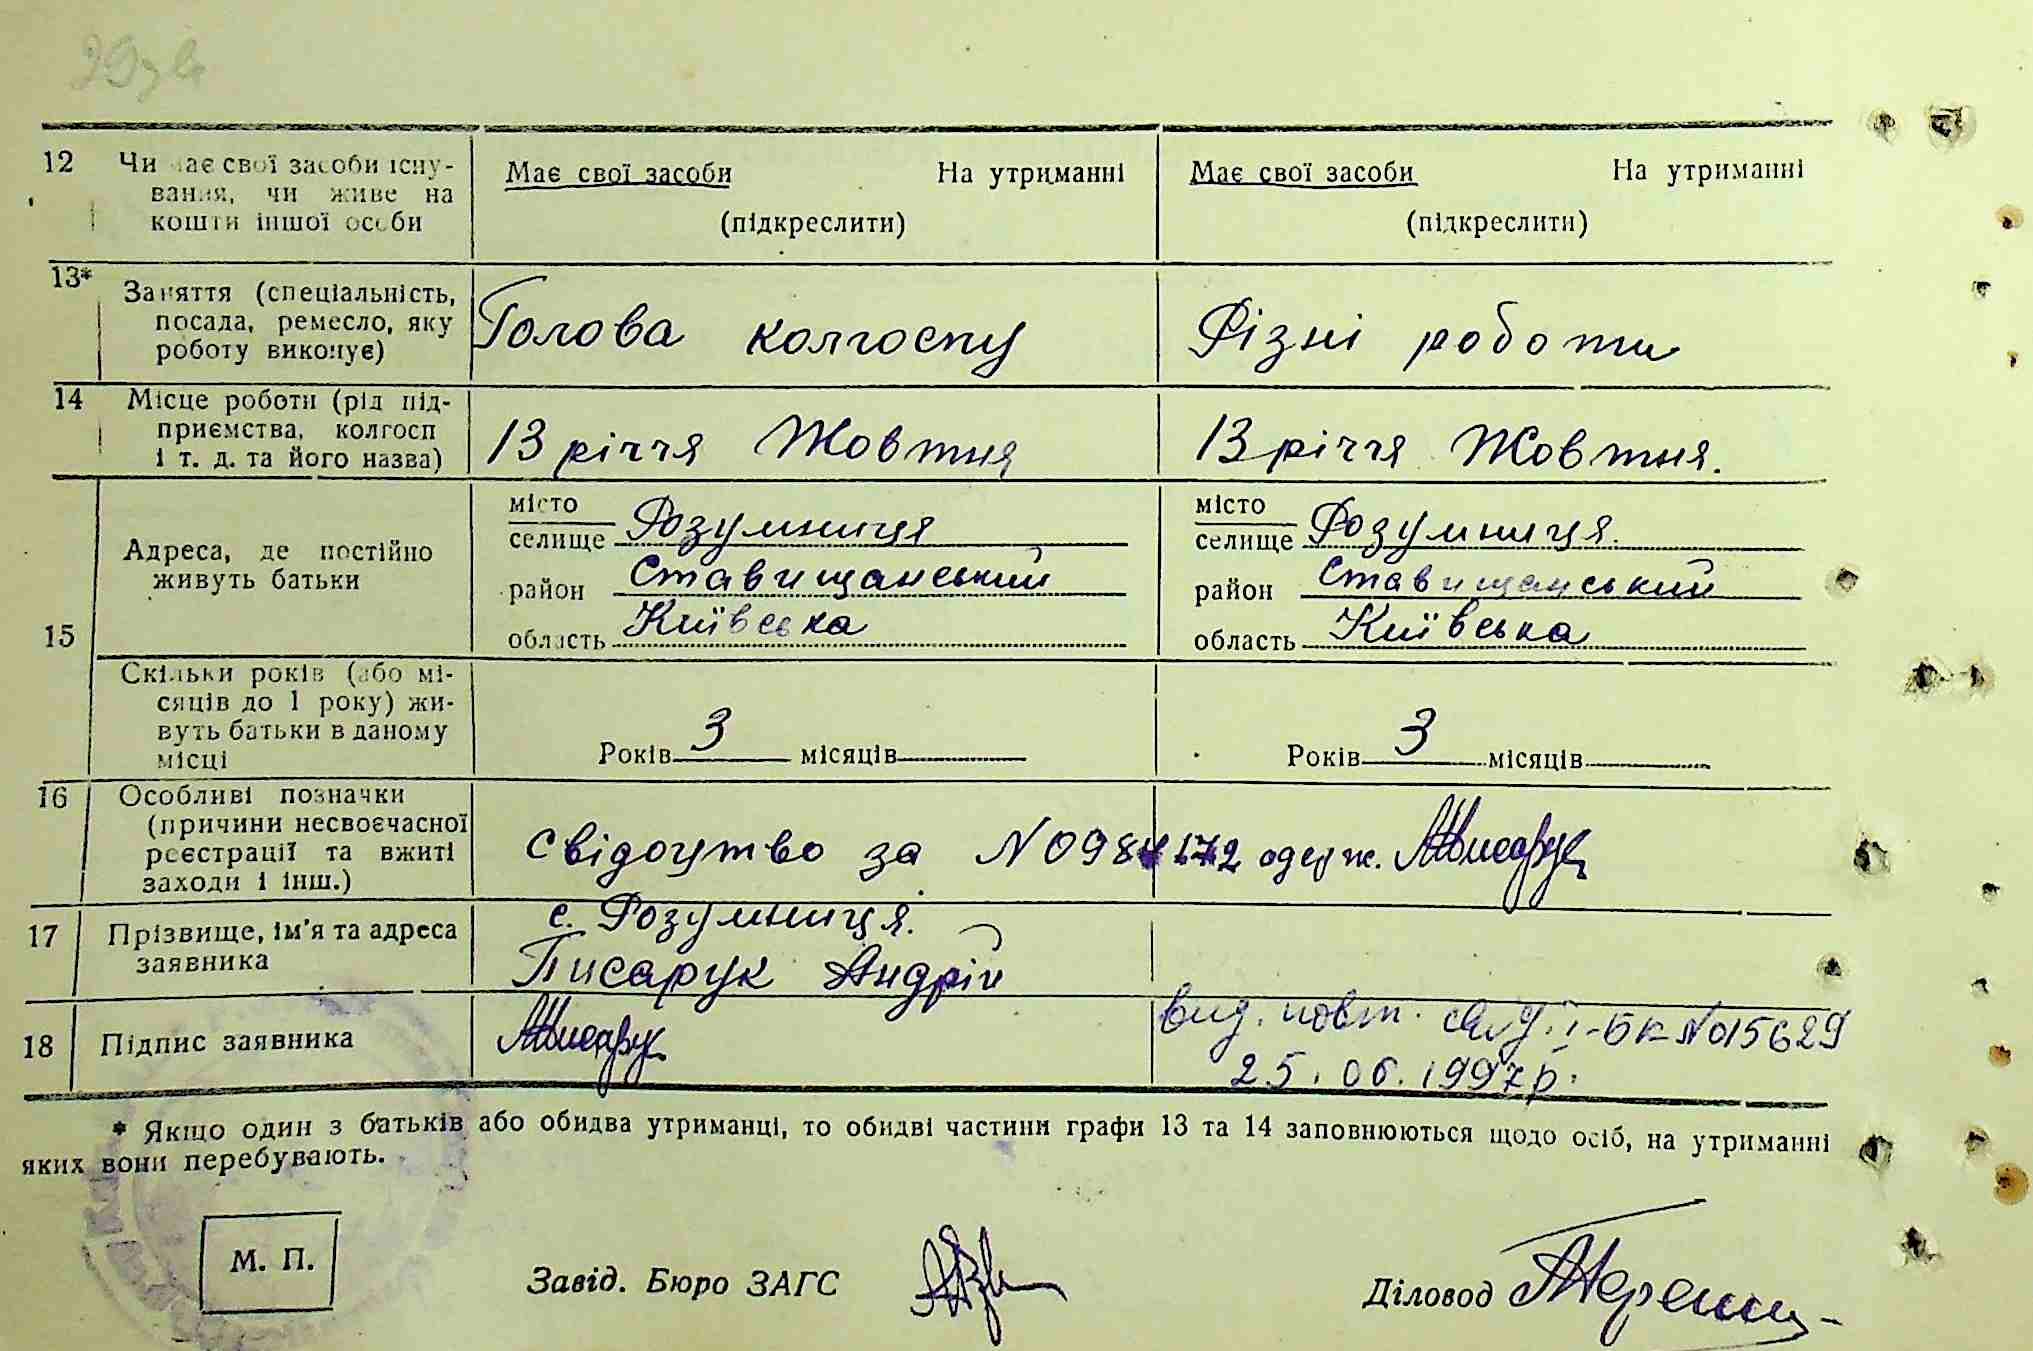 12 Чи має свої засоби існу- Має свої засоби На утриманні Має свої засоби На утриманні
вання, чи живе на
кошти іншої особи (підкреслити) (підкреслити)
13* Заняття (спеціальність,
посада, ремесло, яку Голова колгоспу Різні роботи
роботу виконує)
14 Місце роботи (рід під-
приємства, колгосп 13 річчя Жовтня 13 річчя Жовтня.
і т. д. та його назва)
15 Адреса, де постійно
живуть батьки
місто
селище Розумниця
район Ставищанський
область Київська
місто
селище Розумниця.
район Ставищанський
область Київська
Скільки років (або мі-
сяців до 1 року) жи-
вуть батьки в даному
місці
Років 3 місяців Років 3 місяців
16 Особливі позначки
(причини несвоєчасної
реєстрації та вжиті
заходи і інш.)
Свідоцтво за N 098 одерж.
17 Прізвище, ім'я та адреса
заявника
с. Розумниця.
Писарук Андрій
18 Підпис заявника
вид. повт. свід. I-БК №015629
25.06.1997р.
* Якщо один з батьків або обидва утриманці, то обидві частини графи 13 та 14 заповнюються щодо осіб, на утриманні
яких вони перебувають.
М. П.
Завід. Бюро ЗАГС
Діловод